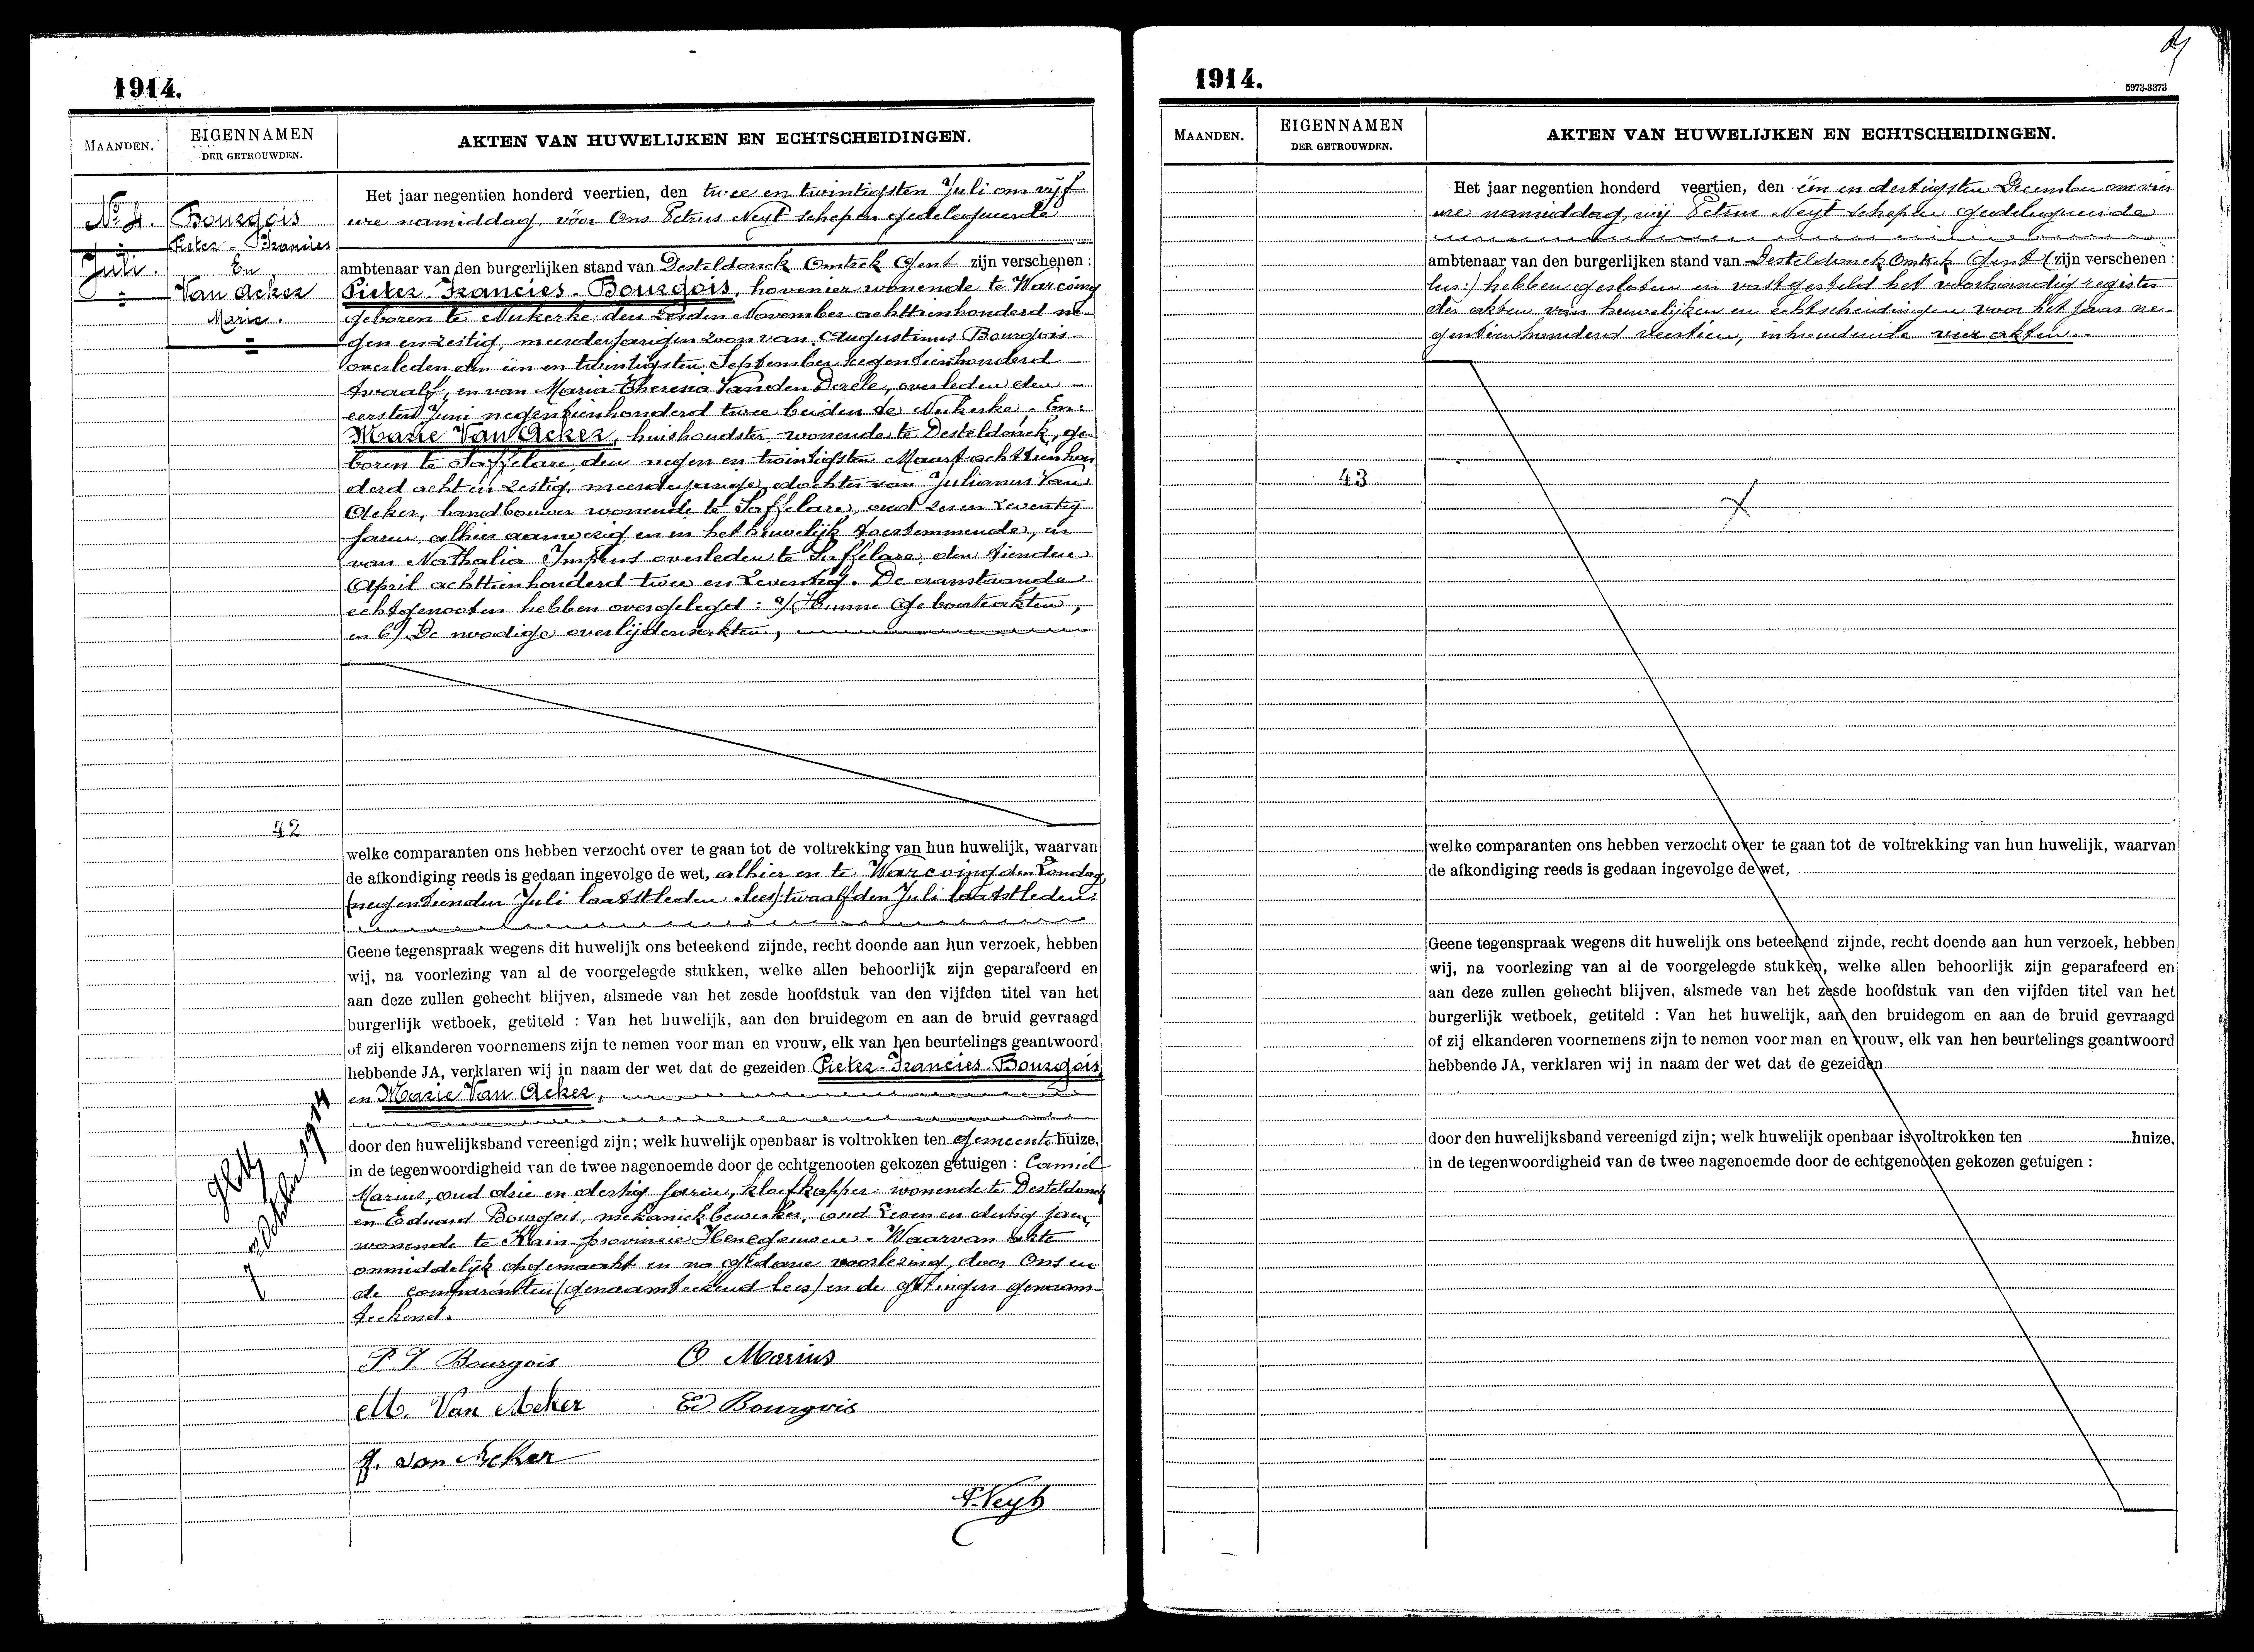 1914.
MAANDEN.
EIGENNAMEN
DER GETROUWDEN.
AKTEN VAN HUWELIJKEN EN ECHTSCHEIDINGEN.
No 4.
Juli.
Bourgois
Pieter - Francies
En
Van Acker
Marie.
Het jaar negentien honderd veertien, den twee en twintigsten Juli om vijf
ure namiddag, vóór Ons Petrus Neyt schepen gedelegueerde
ambtenaar van den burgerlijken stand van Desteldonck Omtrek Gent zijn verschenen :
Pieter-Francies-Bourgois, hovenier wonende te Warcoing
geboren te Nukerke, den zesden November achttienhonderd ne-
gen en zestig, meerderjarigen zoon van Augustinus Bourgois-
overleden den één en twintigsten September negentienhonderd
twaalf, en van Maria Theresia Vanden Daele, overleden den
eersten Juni negentienhonderd twee beiden te Nukerke. En:
Marie Van Acker, huishoudster, wonende te Desteldonck, ge-
boren te Saffelare, den negen en twintigsten Maart achttienhon
derd acht en zestig, meerderjarige dochter van Julianus Van
Acker, landbouwer wonende te Saffelare, oud zes en zeventig
jaren, alhier aanwezig en in het huwelijk toestemmende, en
van Nathalia Impens overleden te Saffelare, den tienden
April achttienhonderd twee en zeventig. De aanstaande
echtgenooten hebben overgelegd : a/ Hunne Geboorteakten,
en b/ De noodige overlijdensakten,
42
welke comparanten ons hebben verzocht over te gaan tot de voltrekking van hun huwelijk, waarvan
de afkondiging reeds is gedaan ingevolge de wet, alhier en te Warcoing den Zondag
(negentienden Juli laatstleden lees) twaalfden Juli laatstleden.
Geene tegenspraak wegens dit huwelijk ons beteekend zijnde, recht doende aan hun verzoek, hebben
wij, na voorlezing van al de voorgelegde stukken, welke allen behoorlijk zijn geparafeerd en
aan deze zullen gehecht blijven, alsmede van het zesde hoofdstuk van den vijfden titel van het
burgerlijk wetboek, getiteld : Van het huwelijk, aan den bruidegom en aan de bruid gevraagd
of zij elkanderen voornemens zijn te nemen voor man en vrouw, elk van hen beurtelings geantwoord
hebbende JA, verklaren wij in naam der wet dat de gezeiden Pieter-Francies-Bourgois,
en Marie Van Acker,
door den huwelijksband vereenigd zijn; welk huwelijk openbaar is voltrokken ten Gemeentehuize,
in de tegenwoordigheid van de twee nagenoemde door de echtgenooten gekozen getuigen : Camiel
Marius, oud drie en dertig jaren, kloefkapper wonende te Desteldonck
en Eduard Bourgois, mekaniekbewerker, oud zeven en dertig jaren,
wonende te Kain provincie Henegouwen. Waarvan akte
onmiddelijk opgemaakt en na gedane voorlezing, door Ons en
de comparanten (genaamteekend lees) en de getuigen genaam-
teekend.
1914
P. F. Bourgois
C Marius
M. Van Acker
Ed Bourgois
J. van Acker
P. Neyt
1914.
5973-3373
MAANDEN.
EIGENNAMEN
DER GETROUWDEN.
AKTEN VAN HUWELIJKEN EN ECHTSCHEIDINGEN.
Het jaar negentien honderd veertien, den één en dertigsten December om vier
ure namiddag, wij Petrus Neyt schepen gedelegueerde
ambtenaar van den burgerlijken stand van Desteldonck Omtrek Gent (zijn verschenen :
lees:) hebben gesloten en vastgesteld het voorhandig register
der akten van huwelijken en echtscheidingen voor het jaar ne-
gentienhonderd veertien, inhoudende vier akten.
43
welke comparanten ons hebben verzocht over te gaan tot de voltrekking van hun huwelijk, waarvan
de afkondiging reeds is gedaan ingevolge de wet,
Geene tegenspraak wegens dit huwelijk ons beteekend zijnde, recht doende aan hun verzoek, hebben
wij, na voorlezing van al de voorgelegde stukken, welke allen behoorlijk zijn geparafeerd en
aan deze zullen gehecht blijven, alsmede van het zesde hoofdstuk van den vijfden titel van het
burgerlijk wetboek, getiteld : Van het huwelijk, aan den bruidegom en aan de bruid gevraagd
of zij elkanderen voornemens zijn te nemen voor man en vrouw, elk van hen beurtelings geantwoord
hebbende JA, verklaren wij in naam der wet dat de gezeiden
door den huwelijksband vereenigd zijn; welk huwelijk openbaar is voltrokken ten huize,
in de tegenwoordigheid van de twee nagenoemde door de echtgenooten gekozen getuigen :